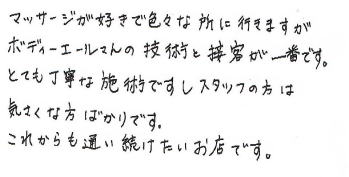 マッサージが好きで色々な所に行きますが
ボディーエールさんの技術と接客が一番です。
とても丁寧な施術ですしスタッフの方は
気さくな方ばかりです。
これからも通い続けたいお店です。